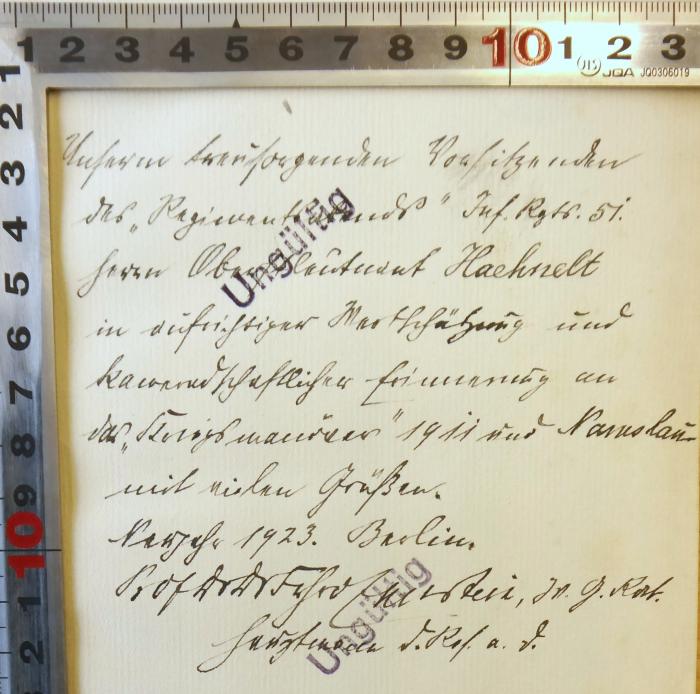 1 2 3 4 5 6 7 8 9 10 1 2 3
JIS JQA JQ0306019
1 2 3 4 5 6 7 8 9 10 1 2
Unserm treusorgenden Vorsitzenden
des „Regimentsabends" Inf. Rgts. 51.
Herrn Oberstleutnant Haehnelt
in aufrichtiger Wertschätzung und
kameradschaftlicher Erinnerung an
das „Kriegsmanöver" 1911 und Namslau
mit vielen Grüßen.
Neujahr 1923. Berlin.
Prof Dr Dr Frhr stein, G. Rat.
Hauptmann d. Res. a. D.
Ungültig
Ungültig